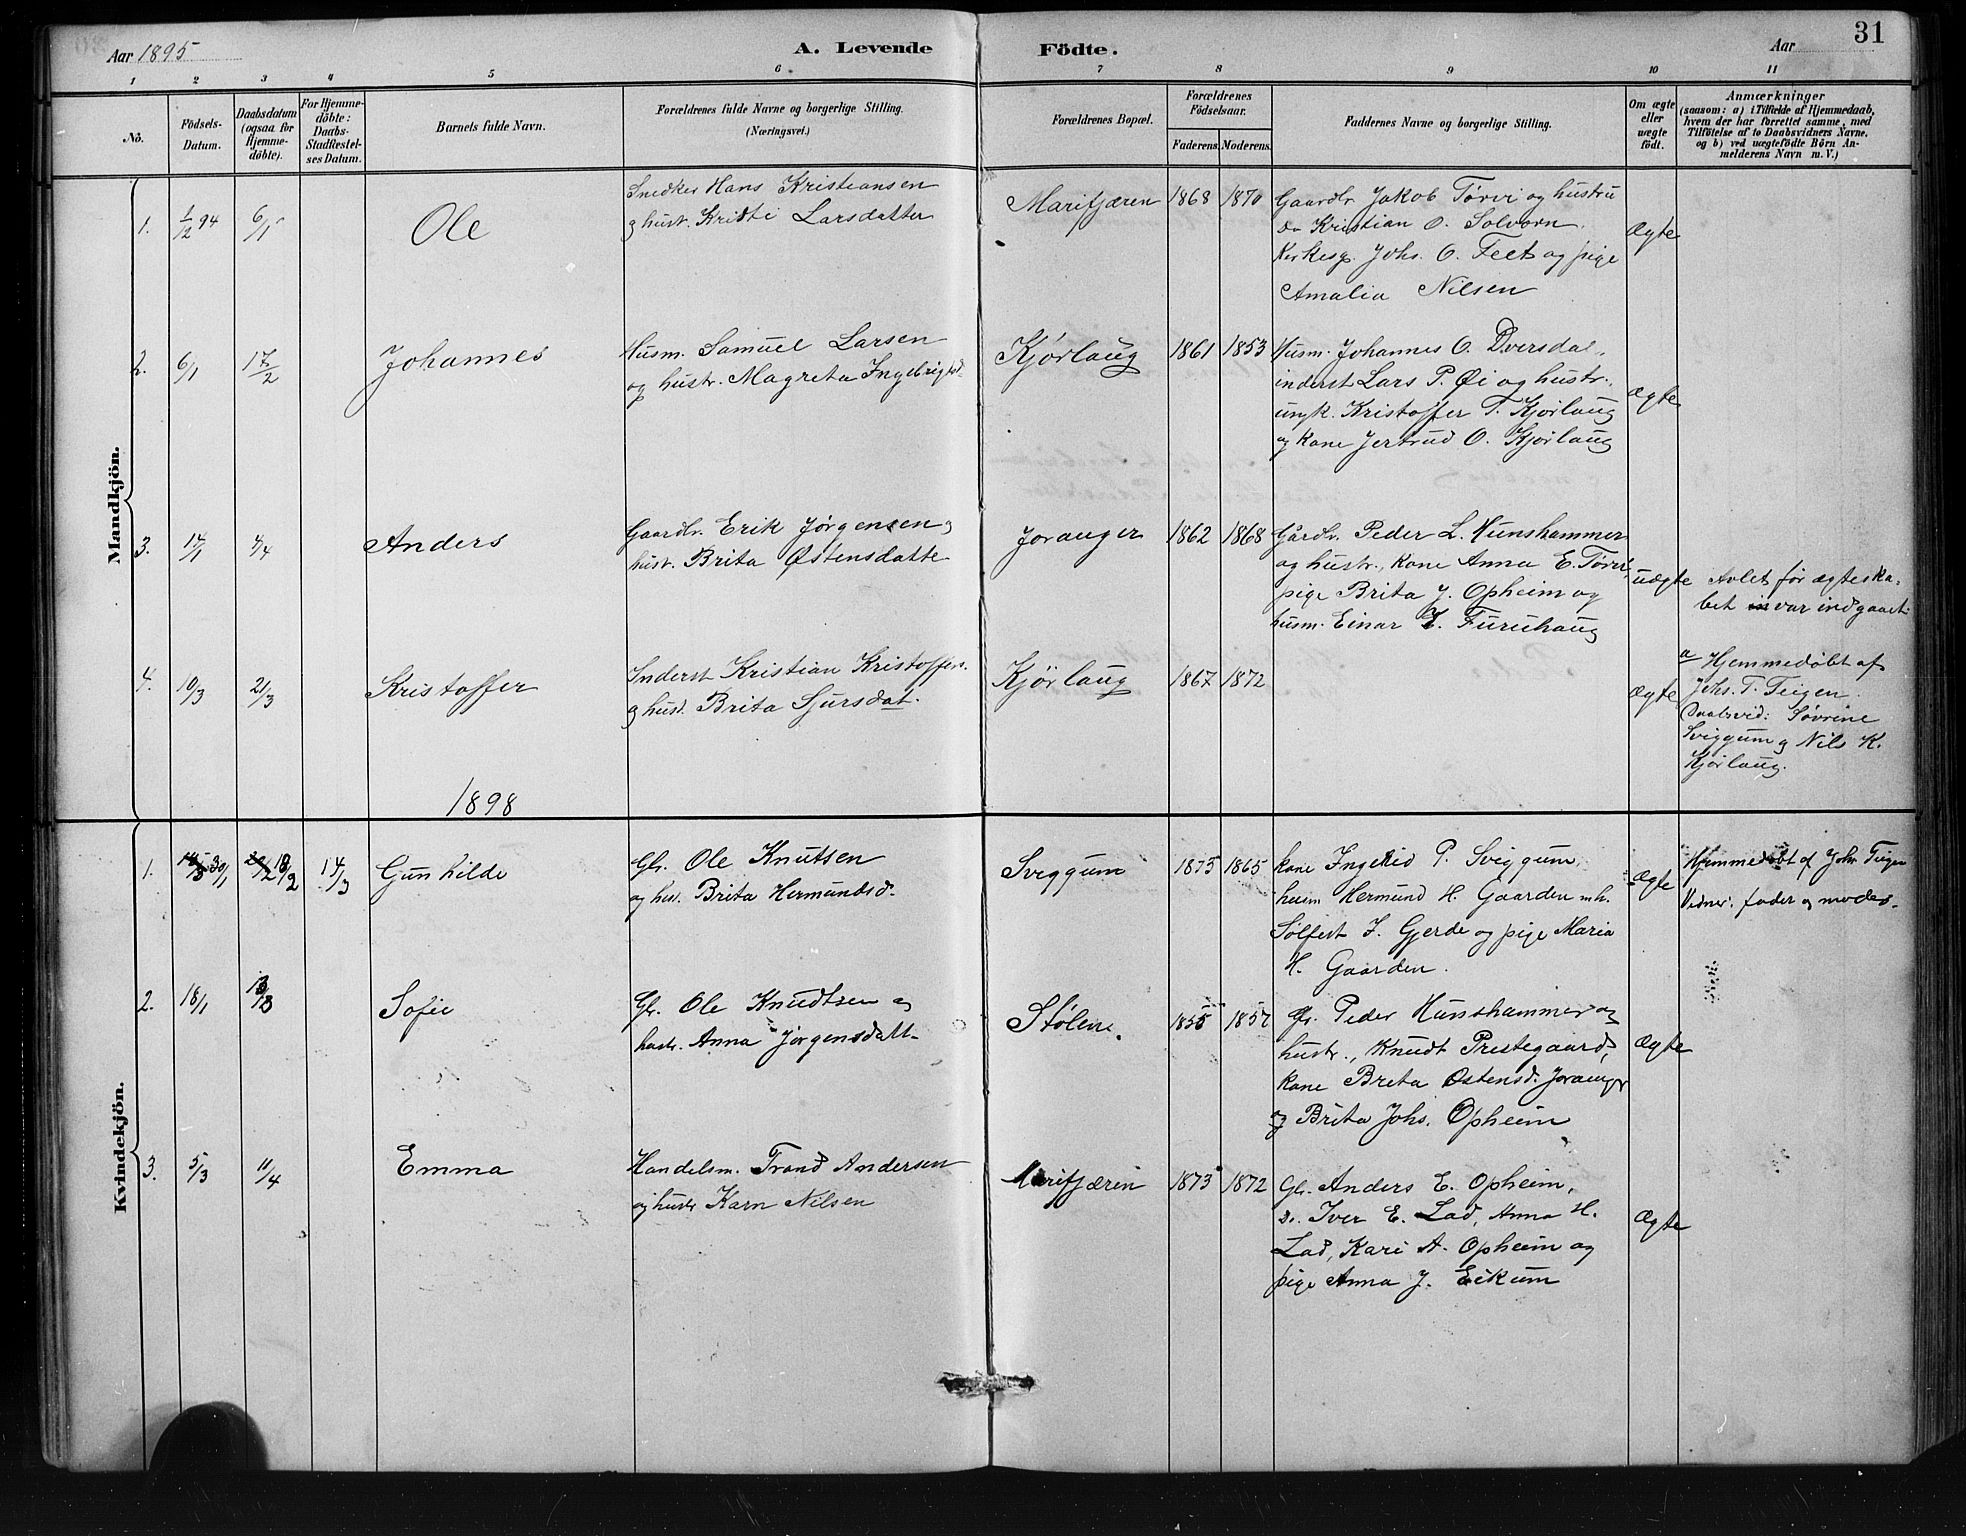 Aar 1895
A. Levende Födte.
Aar
31
1 2 3 4 5 6 7 8 9 10 11
No.
Födsels-Datum.
Daabsdatum (ogsaa for Hjemme-döbte).
For Hjemme-döbte: Daabs-Stadfestel-ses Datum.
Barnets fulde Navn.
Forældrenes fulde Navne og borgerlige Stilling.
(Næringsvei.)
Forældrenes Bopæl.
Forældrenes Födselsaar.
Faderens. Moderens.
Faddernes Navne og borgerlige Stilling.
Om ægte eller uægte födt.
Anmærkninger
(saasom: a) i Tilfælde af Hjemmedaab,
hvem der har forrettet samme, med
Tilföielse af to Daabsvidners Navne.
og b) ved uægtefödte Börn An-
melderens Navn m. V.)
Mandkjön.
1. 1/12 94 6/1 Ole
Snedker Hans Kristiansen
og hust. Kristi Larsdatter
Marifjæren 1868 1870
Gaardbr. Jakob Tørvi og hustru
Do Kristian O. Solvorn.
Kirkesg. Johs. O. Feet og pige
Amalia Nilsen
Ægte
2. 6/1 17/2 Johannes
Husm. Samuel Larsen
og hustr. Magreta Ingebrigtsd.
Kjørlaug 1861 1853
Husm. Johannes O. Dversdal,
inderst Lars P. Øi og hustr.,
ungk. Kristoffer T. Kjørlaug
og Kone Jertrud O. Kjørlaug
Ægte
3. 14/1 4/4 Anders
Gaardbr. Erik Jørgensen og
hust. Brita Østensdatte
Joranger 1862 1868
Gårdbr. Peder L. Hunshammer
og hustr., kone Anna E. Tørvi
pige Brita J. Opheim og
husm. Einar K. Furuhaug
uægte
Avlet før ægteska-
bet in var indgaaet.
4. 10/3 21/3 Kristoffer
Inderst Kristian Kristoffers.
og hust. Brita Sjursdat.
Kjørlaug 1867 1872
Ægte
a Hjemmedøbt af
Johs. T. Teigen.
Daabsvid: Søvrine
Sviggum og Nils K.
Kjørlaug.
1898
Kvindekjön.
1. 30/1 18/2 14/3 Gunhilde
Gbr. Ole Knutsen
og hus. Brita Hermundsd.
Sviggum 1875 1865
kone Ingerid P. Sviggum,
husm Hermund H. Gaarden u.k.
Sølfest J. Gjerde og pige Maria
H. Gaarden.
Ægte
Hjemmedøbt af Johs Teigen
Vidner: fader og moder.
2. 18/1 13/3 Sofie
Gbr. Ole Knudtsen og
hustr. Anna Jørgensdatt.
Stølene. 1855 1857
Gbr. Peder Hunshammer og
hustr., Knudt Prestegaard,
kone Breta Østensd. Joranger
og Brita Johs. Opheim
Ægte
3. 5/3 11/4 Emma
Handelsm. Trond Andersen
og hustr Karn Nilsen
Marifjæren 1873 1872
Gbr. Anders E. Opheim,
Do. Iver E. Lad, Anna H.
Lad, Kari A. Opheim og
pige Anna J. Eikum
Ægte